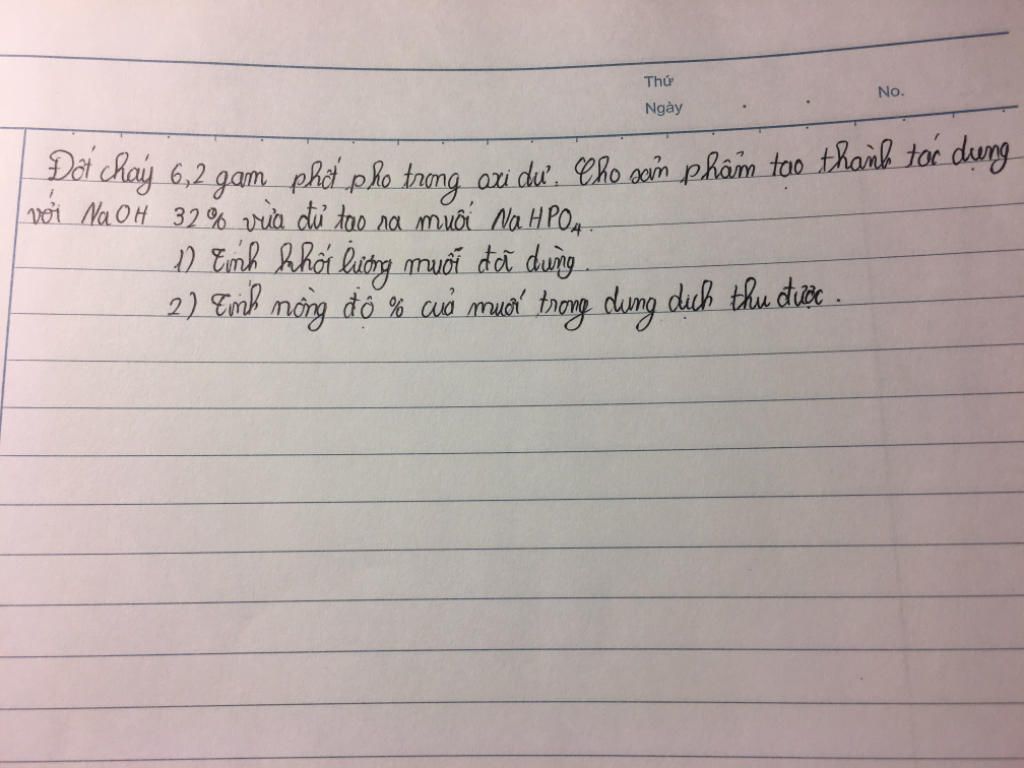 Thứ
Ngày . . No.
Đốt cháy 6,2 gam phốt pho trong oxi dư. Cho sản phẩm tạo thành tác dụng
với NaOH 32% vừa đủ tạo ra muối NaHPO₄.
1) Tính khối lượng muối đã dùng.
2) Tính nồng độ % của muối trong dung dịch thu được.